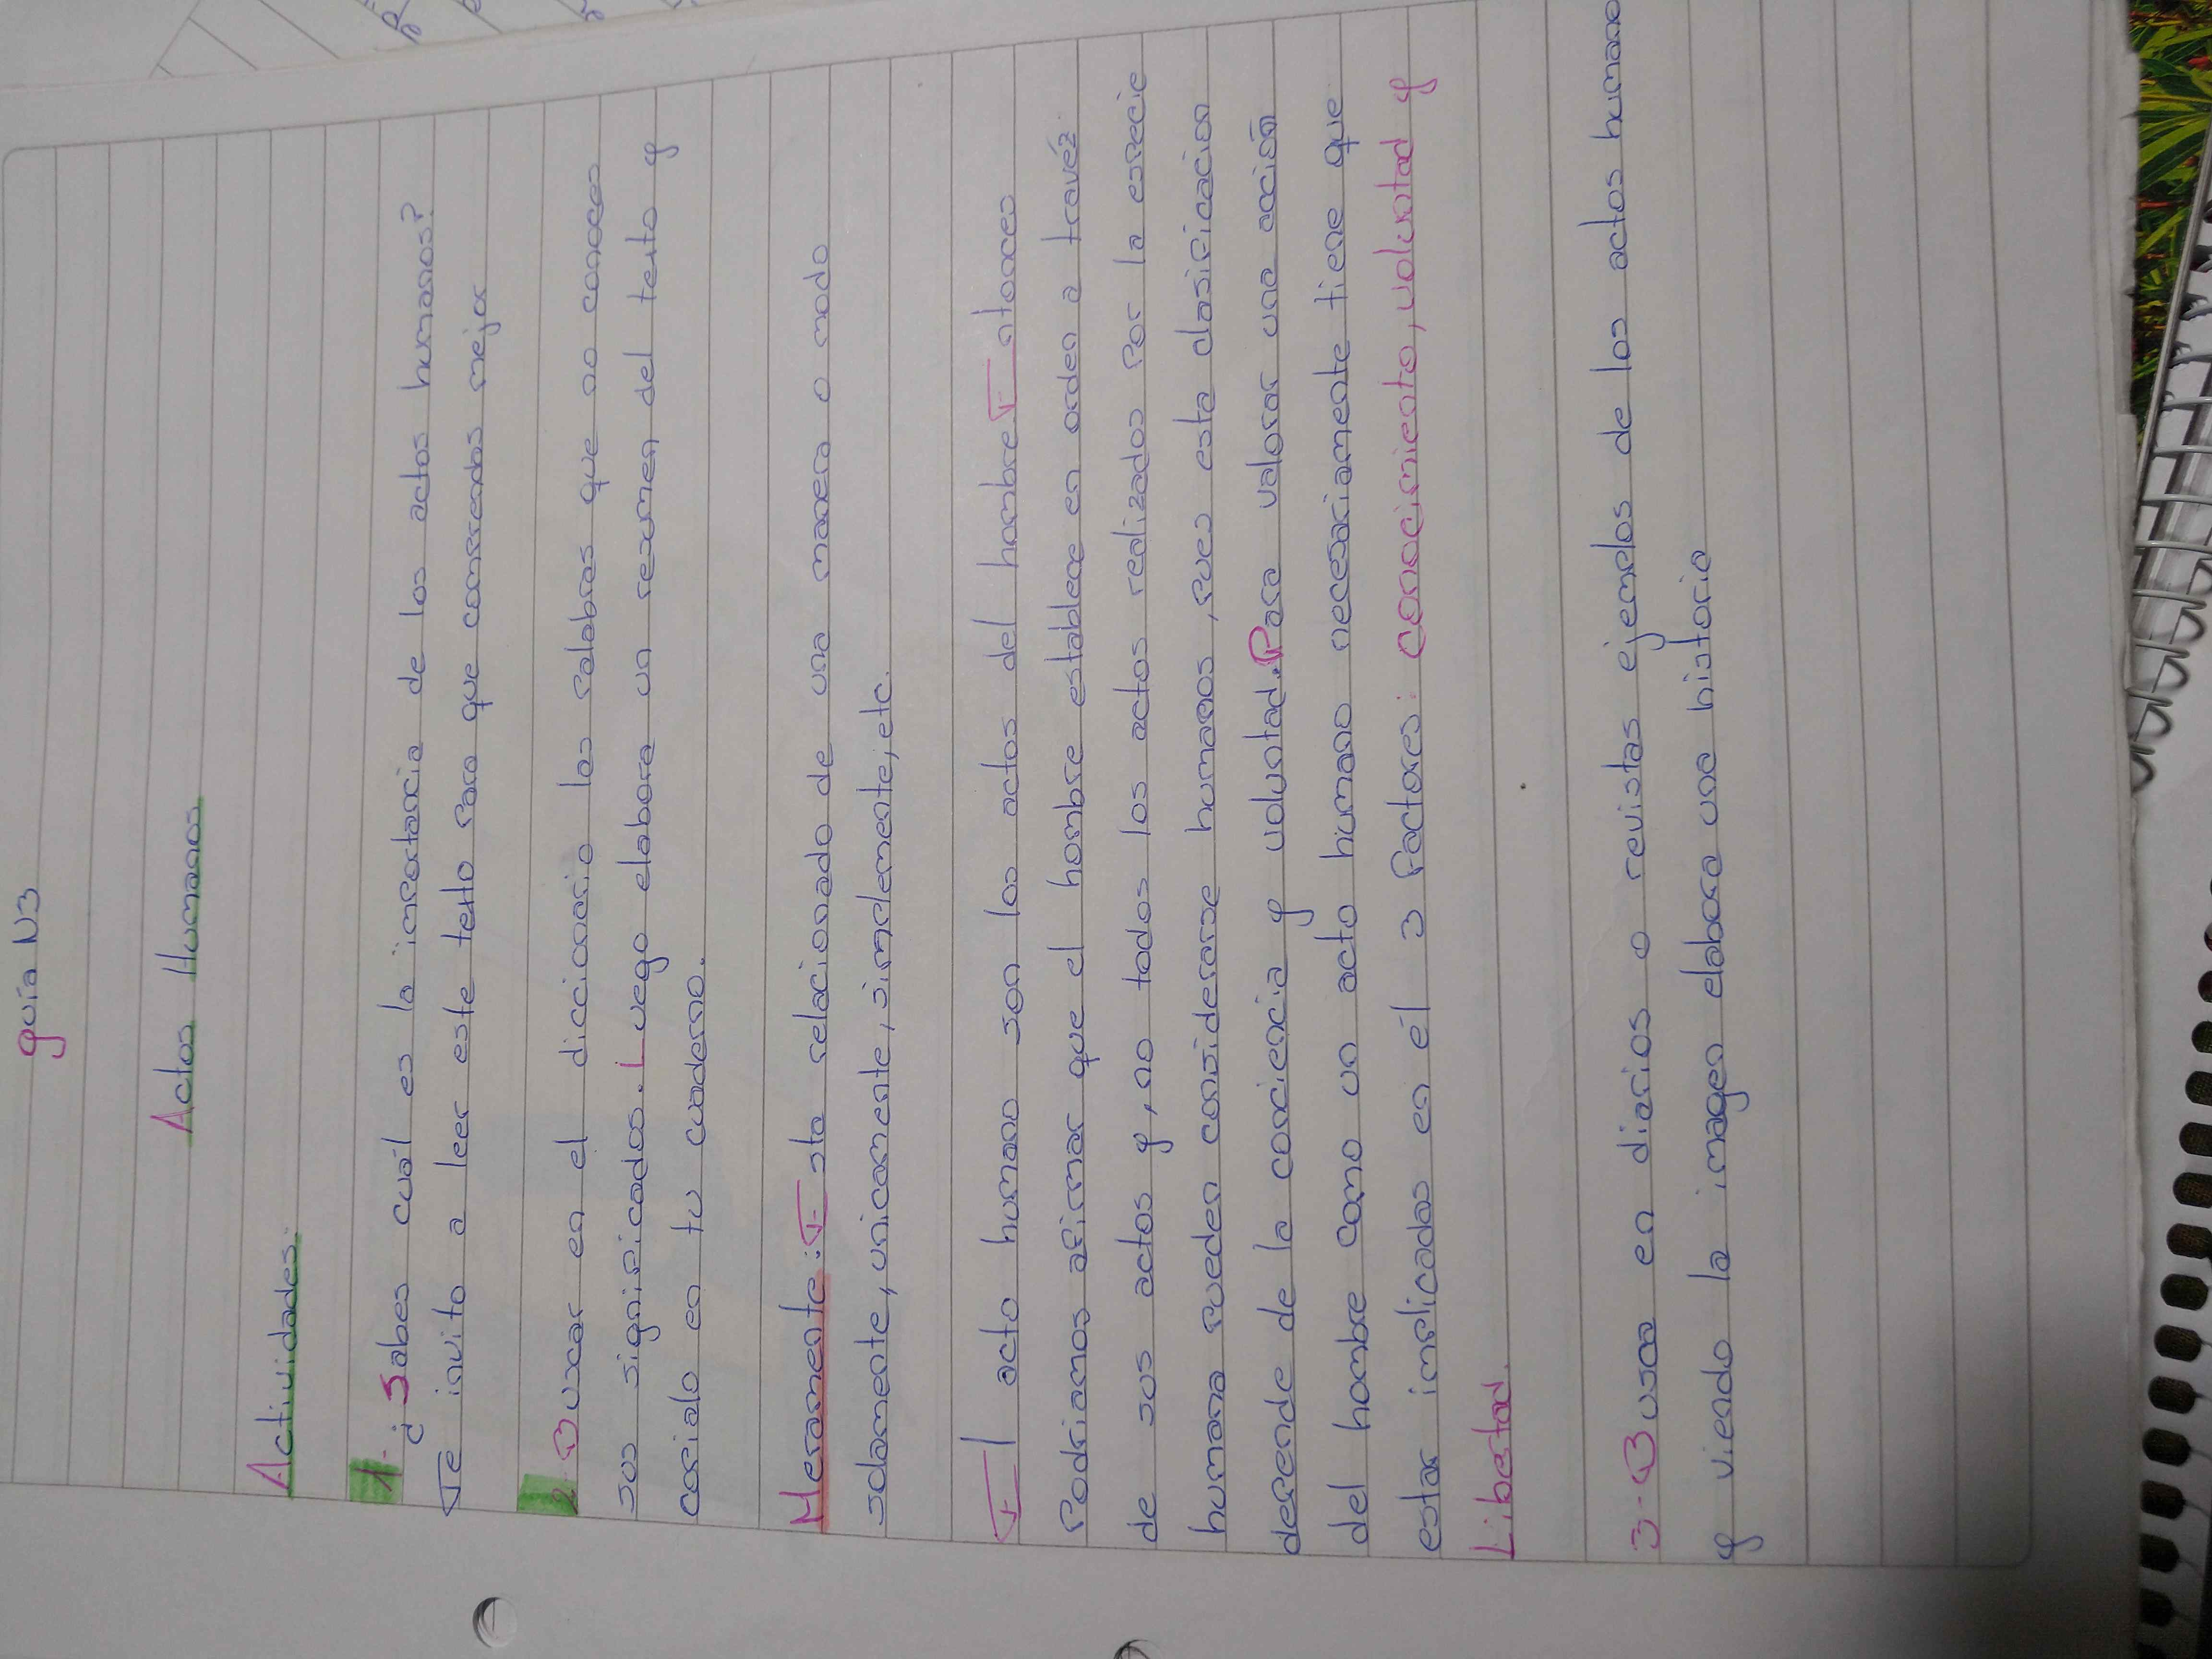 guía N3
Actos Humanos
Actividades:
1- ¿Sabes cuál es la importancia de los actos humanos?
Te invito a leer este texto para que comprendas mejor
2- Buscar en el diccionario las palabras que no conoces
sus significados. Luego elabora un resumen del texto y
copialo en tu cuaderno.
Meramente: Esta relacionado de una manera o modo
solamente, unicamente, simplemente, etc.
El acto humano son los actos del hombre Entonces
Podriamos afirmar que el hombre establece en orden a travéz
de sus actos y, no todos los actos realizados por la especie
humana pueden considerarse humanos, pues esta clasificacion
depende de la conciencia y voluntad. Para valorar una acción
del hombre como un acto humano necesariamente tiene que
estar implicados en él 3 factores: conocimiento, voluntad y
Libertad.
3- Busca en diarios o revistas ejemplos de los actos humano
y viendo la imagen elabora una historia